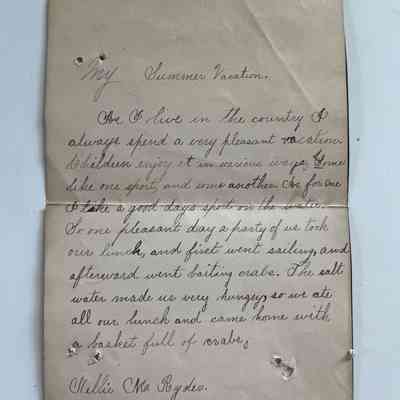 My Summer Vacation.
As I live in the country I
always spend a very pleasant vacation
Children enjoy it in various ways, Some
like one sport, and some another. As for me
I take a good days sport on the water.
So one pleasant day a party of us took
our lunch, and first went sailing, and
afterward went baiting crabs. The salt
water made us very hungry, so we ate
all our lunch and came home with
a basket full of crabs,
Nellie Mc